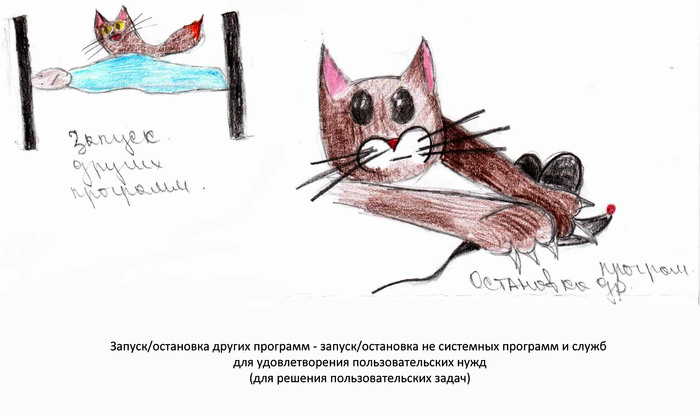 Запуск
других
программ.
програм.
Остановка др.
Запуск/остановка других программ - запуск/остановка не системных программ и служб
для удовлетворения пользовательских нужд
(для решения пользовательских задач)